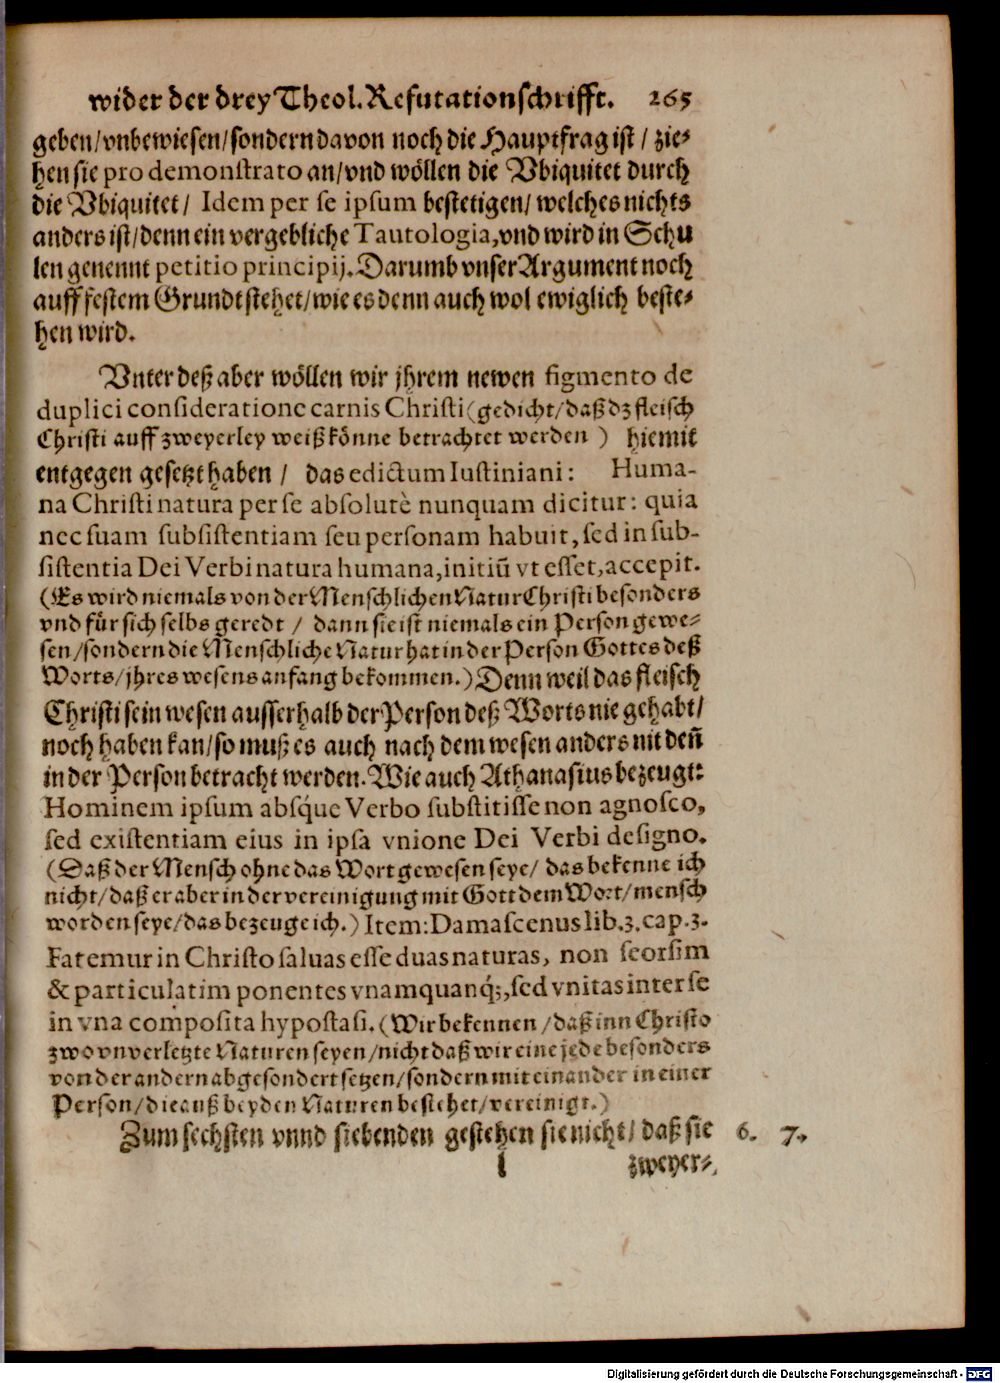 wider der drey Theol. Refutationschrifft. 265
geben/vnbewiesen/sondern davon noch die Hauptfrag ist / zie-
hen sie pro demonstrato an/vnd wöllen die Vbiquitet durch
die Vbiquitet/ Idem per se ipsum bestetigen/ welches nichts
anders ist/denn ein vergebliche Tautologia, vnd wird in Schu
len genennt petitio principij. Darumb vnser Argument noch
auff festem Grundt stehet/wie es denn auch wol ewiglich beste-
hen wird.
Vnter deß aber wöllen wir jhrem newen figmento de
duplici consideratione carnis Christi (gedicht/daß dz fleisch
Christi auff zweyerley weiß könne betrachtet werden ) hiemit
entgegen gesetzt haben / das edictum Iustiniani: Huma-
na Christi natura per se absolutè nunquam dicitur: quia
nec suam subsistentiam seu personam habuit, sed in sub-
sistentia Dei Verbi natura humana, initiū vt esset, accepit.
(Es wird niemals von der Menschlichen Natur Christi besonders
vnd für sich selbs geredt / dann sie ist niemals ein Person gewe-
sen/sondern die Menschliche Natur hat in der Person Gottes deß
Worts/jhres wesens anfang bekommen.) Denn weil das fleisch
Christi sein wesen ausserhalb der Person deß Worts nie gehabt/
noch haben kan/so muß es auch nach dem wesen anders nit deñ
in der Person betracht werden. Wie auch Athanasius bezeugt:
Hominem ipsum absq́ue Verbo substitisse non agnosco,
sed existentiam eius in ipsa vnione Dei Verbi designo.
(Daß der Mensch ohne das Wort gewesen seye/ das bekenne ich
nicht/daß er aber in der vereinigung mit Gott dem Wort/mensch
worden seye/das bezeuge ich.) Item: Damascenus lib. 3. cap. 3.
Fatemur in Christo saluas esse duas naturas, non seorsim
& particulatim ponentes vnamquanq́;, sed vnitas inter se
in vna composita hypostasi. (Wir bekennen /daß inn Christo
zwo vnverletzte Naturen seyen/nicht daß wir eine jede besonders
von der andern abgesondert setzen/sondern mit einander in einer
Person/die auß beyden Naturen bestehet/vereinigt.)
Zum sechsten vnnd siebenden gestehen sie nicht/ daß sie 6. 7.
l zweyer-
Digitalisierung gefördert durch die Deutsche Forschungsgemeinschaft - DFG